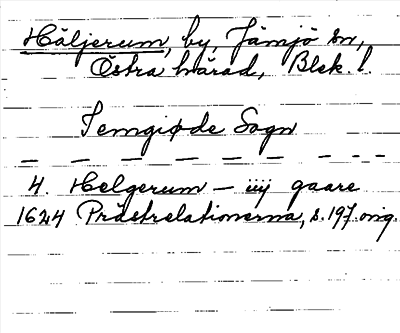 Häljerum, by, Jämjö sn,
Östra härad, Blek. l.
Jemgiøde Sogn
— — — — — — — - - -
4. Helgerum — iiij gaare
1624 Prästrelationerna, s. 197. orig.